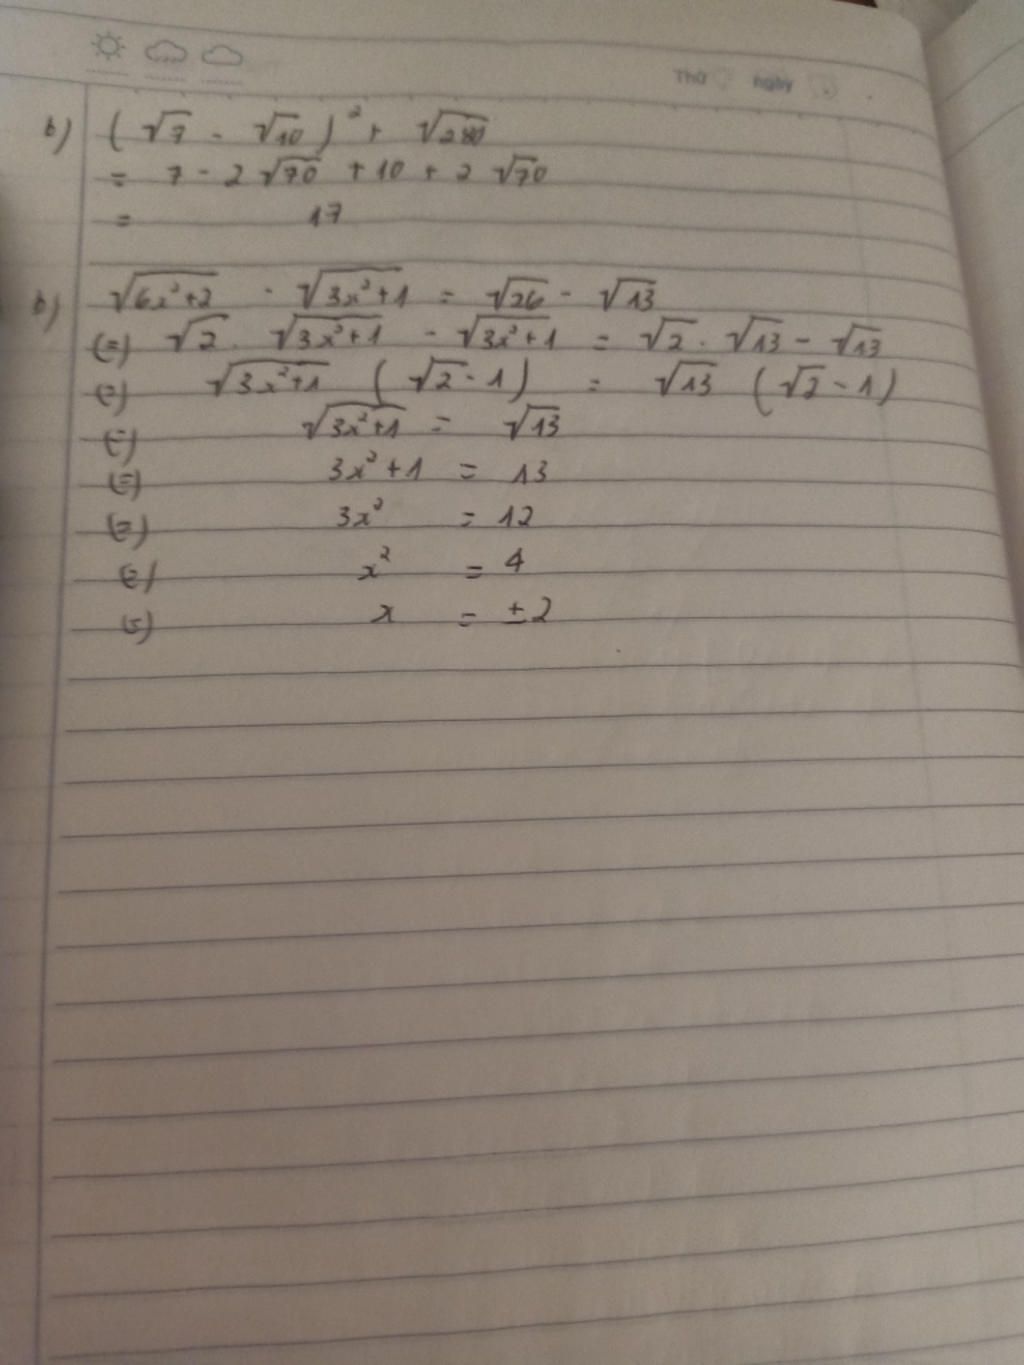 Thứ ngày
b) (√7 - √10)² + √280
= 7 - 2√70 + 10 + 2√70
= 17
b) √6x²+2 - √3x²+1 = √26 - √13
(=) √2 . √3x²+1 - √3x²+1 = √2 . √13 - √13
(=) √3x²+1 (√2 - 1) = √13 (√2 - 1)
(=) √3x²+1 = √13
(=) 3x²+1 = 13
(=) 3x² = 12
(=) x² = 4
(=) x = ±2